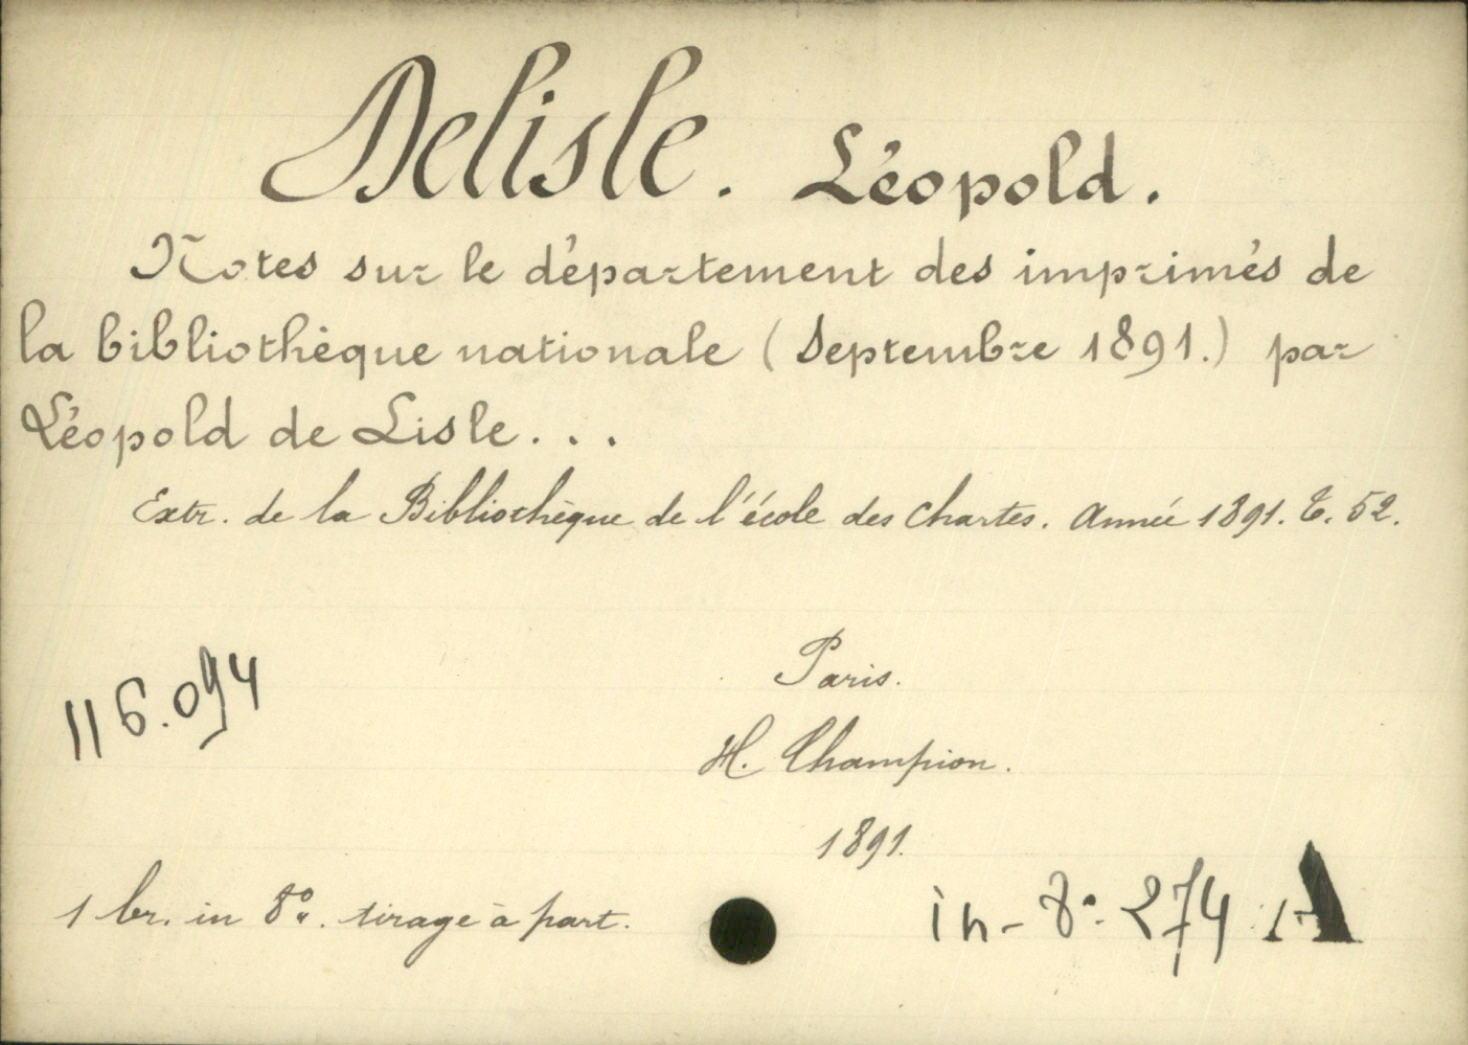 Delisle. Léopold.
Notes sur le département des imprimés de
la bibliothèque nationale (Septembre 1891.) par
Léopold de Lisle...
Extr. de la Bibliothèque de l'école des chartes. Année 1891. T. 52.
116.094
Paris.
H. Champion.
1891.
1 br. in 8°. tirage à part.
in-8° 274 A